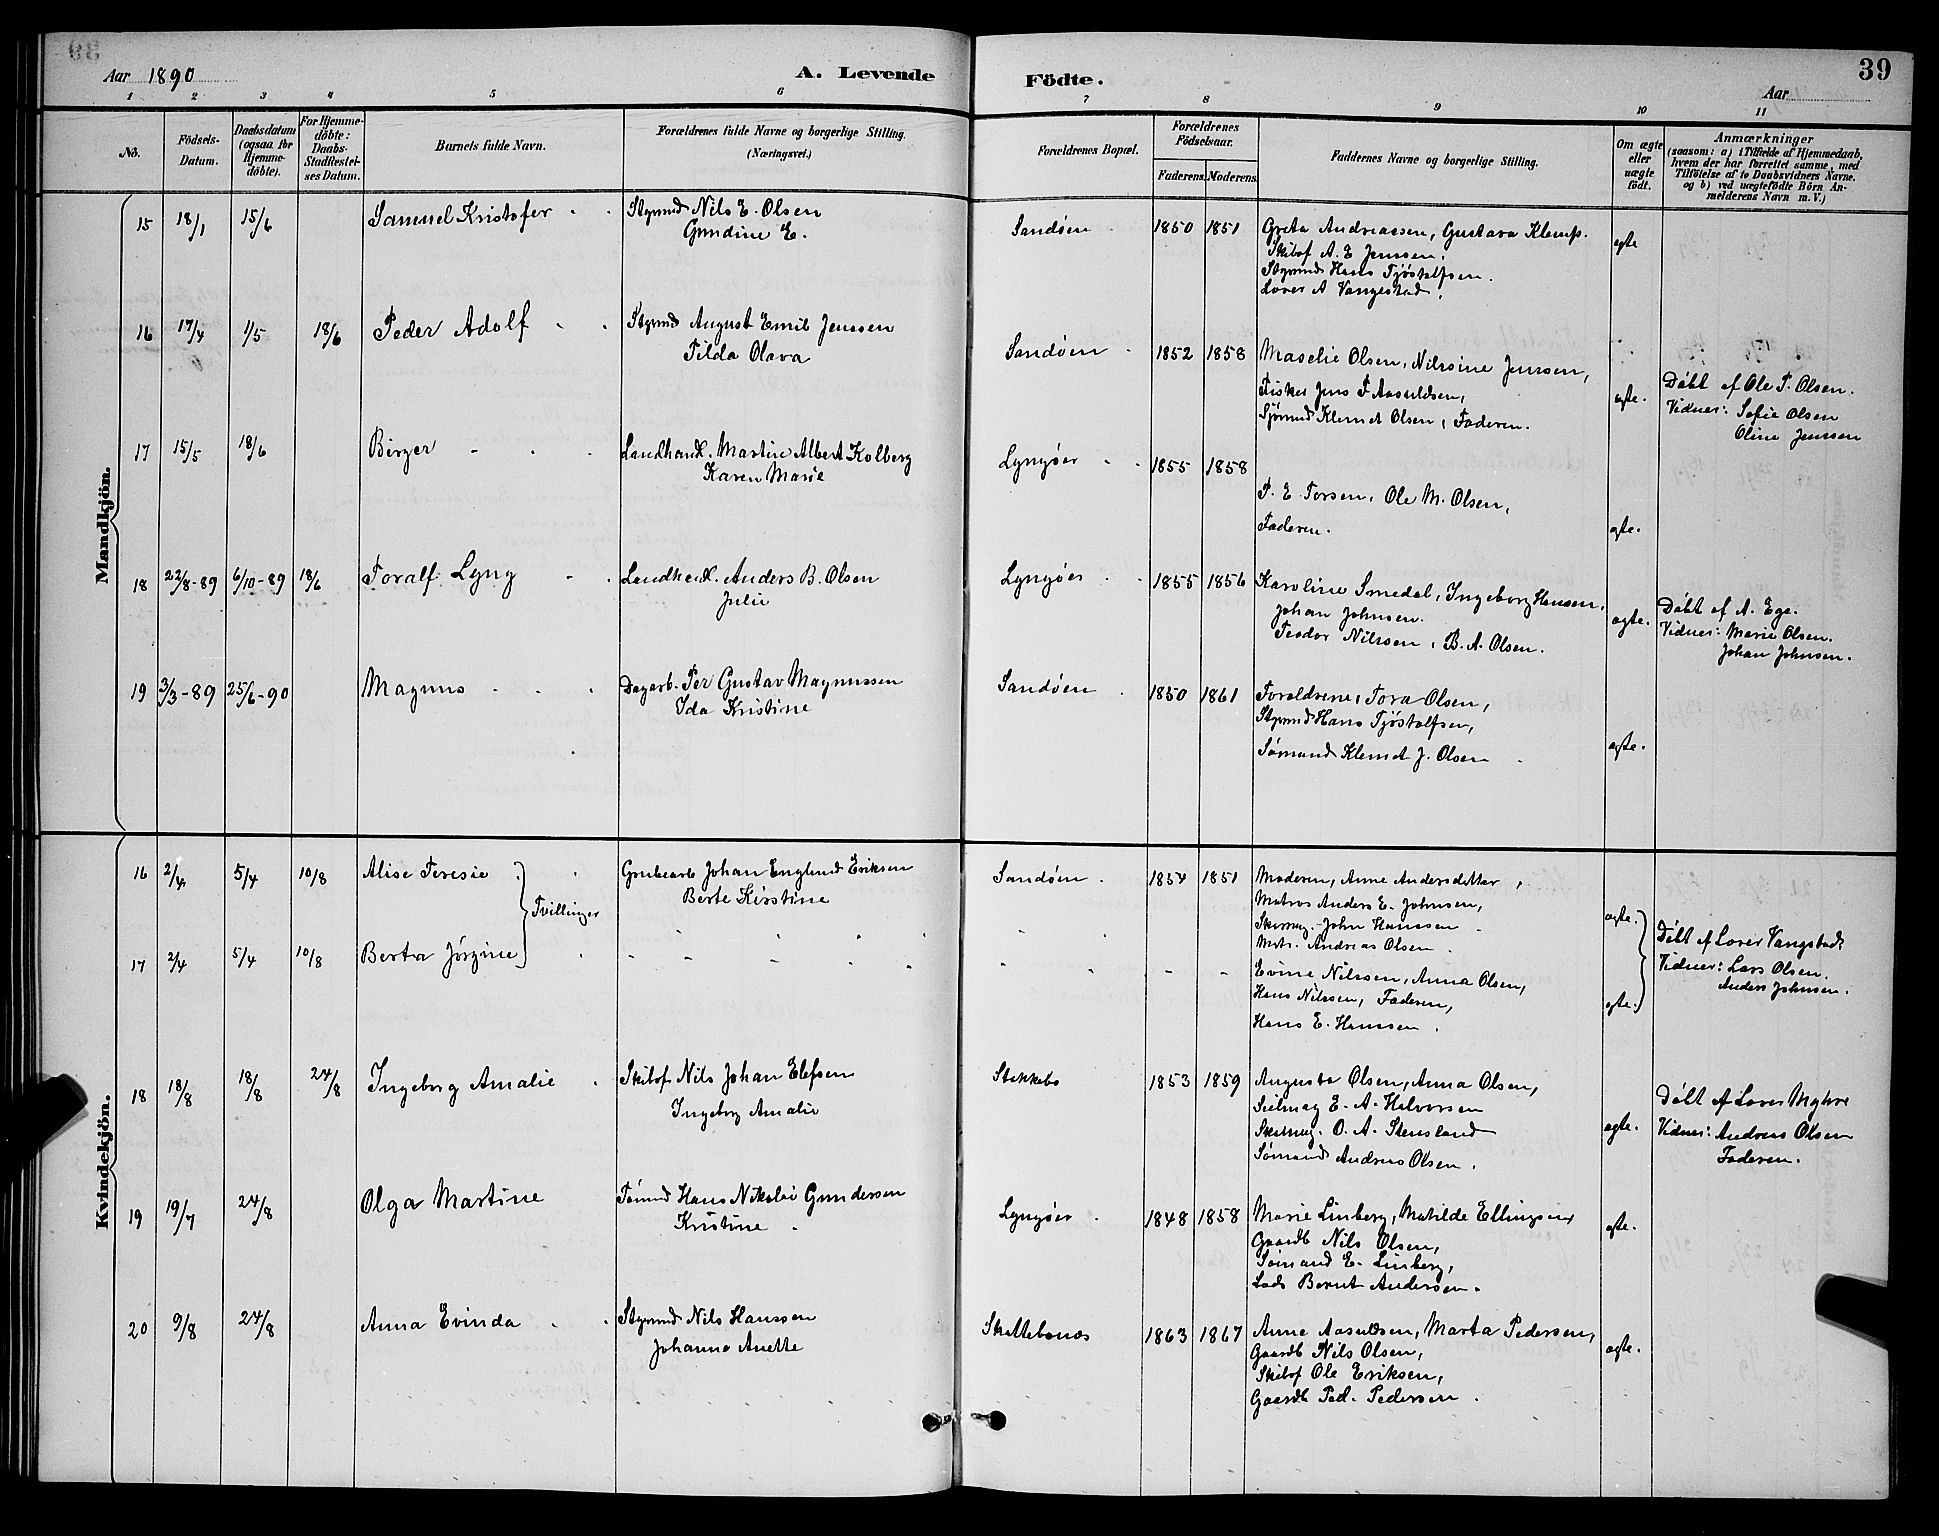 Aar 1890
A. Levende
Födte.
39
Aar
1 2 3 4 5 6 7 8 9 10 11
No.
Födsels-
Datum.
Daabsdatum
(ogsaa for
Hjemme-
döbte).
For Hjemme-
döbte:
Daabs-
Stadfæstel-
ses Datum.
Barnets fulde Navn.
Forældrenes fulde Navne og borgerlige Stilling.
(Næringsvei.)
Forældrenes Bopæl.
Forældrenes
Födselsaar.
Faderens. Moderens.
Faddernes Navne og borgerlige Stilling.
Om ægte
eller
uægte
födt.
Anmærkninger
(saasom: a) i Tilfælde af Hjemmedaab,
hvem der har forrettet samme, med
Tilföielse af to Daabsvidners Navne.
og b) ved uægtefödte Börn An-
melderens Navn m. V.)
Mandkjön.
15 18/1 15/6 Samuel Kristofer Styrmd Nils E. Olsen
Gundine E.
Sandøen 1850 1851 Greta Andreassen, Gustava Klemp.
Skibsf A. E Jenssen,
Styrmd Hans Tjöstolfsen.
Lover A Vangestad.
ægte
16 17/4 1/5 18/6 Peder Adolf Styrmd August Emil Jenssen
Tilda Olava
Sandøen 1852 1858 Maselie Olsen, Nilsine Jenssen,
Fisker Jens F Aasuldsen,
Sjömd Klemet Olsen, Faderen.
ægte.
Döbt af Ole P. Olsen.
Vidner: Sofie Olsen
Oline Jenssen
17 15/5 18/6 Birger Landhandl. Martin Albert Kolberg
Karen Marie
Lyngøer 1855 1858
P. E. Torsen, Ole M. Olsen,
Faderen.
ægte.
18 22/8-89 6/10-89 18/6 Toralf Lyng Landhandl. Anders B. Olsen
Julie
Lyngøer 1855 1856 Karoline Smedal, Ingeborg Hansen,
Johan Johnsen.
Teodor Nilssen, B. A. Olsen.
ægte.
Döbt af A. Ege.
Vidner: Marie Olsen.
Johan Johnsen.
19 3/3-89 25/6-90 Magnus Dagarb. Per Gustav Magnussen
Ida Kristine
Sandøen 1850 1861 Foraldrene, Tora Olsen,
Styrmd Hans Tjöstolfsen,
Sömand Klemet J. Olsen
ægte.
Kvindekjön.
16 2/4 5/4 10/8 Alise Teresie Grubearb Johan Englund Eriksen
Berte Kirstine
Tvillinger
Sandøen 1854 1851 Moderen, Anne Andersdatter,
Matros Anders E. Johnsen,
John Hanssen
Matr. Andreas Olsen
ægte.
17 2/4 5/4 10/8 Berta Jörgine
Evine Nilssen, Anna Olsen,
Hans Nilssen, Faderen,
Hans E. Hanssen.
ægte.
Döbt af Lover Vangstad.
Vidner: Lars Olsen.
Anders Johnsen.
18 18/8 18/8 24/8 Ingeborg Amalie Skibsf Nils Johan Elefsen
Ingeborg Amalie
Stokkebo 1853 1859 Augusta Olsen, Anna Olsen,
Seilmag E. A. Halvorsen
O. A. Stensland
Sømand Andreas Olsen.
ægte.
Döbt af Lover Myhre
Vidner: Andreas Olsen
Faderen.
19 19/7 24/8 Olga Martine Tömmd Hans Nikolai Gundersen
Kristine
Lyngøer 1848 1858 Marie Linberg, Matilde Ellingsen,
Gaardb Nils Olsen,
Sömand E. Linberg,
Lods Bernt Andersen.
ægte.
20 9/8 24/8 Anna Evinda Styrmd Nils Hanssen
Johanna Anette
Skottebonæs 1863 1867 Anne Aasuldsen, Marta Pedersen,
Gaardb Nils Olsen,
Skibsf Ole Eriksen,
Gaardb Ped. Pedersen.
ægte.